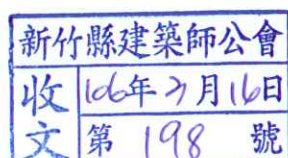 新竹縣建築師公會
收文
106年3月16日
第 198 號